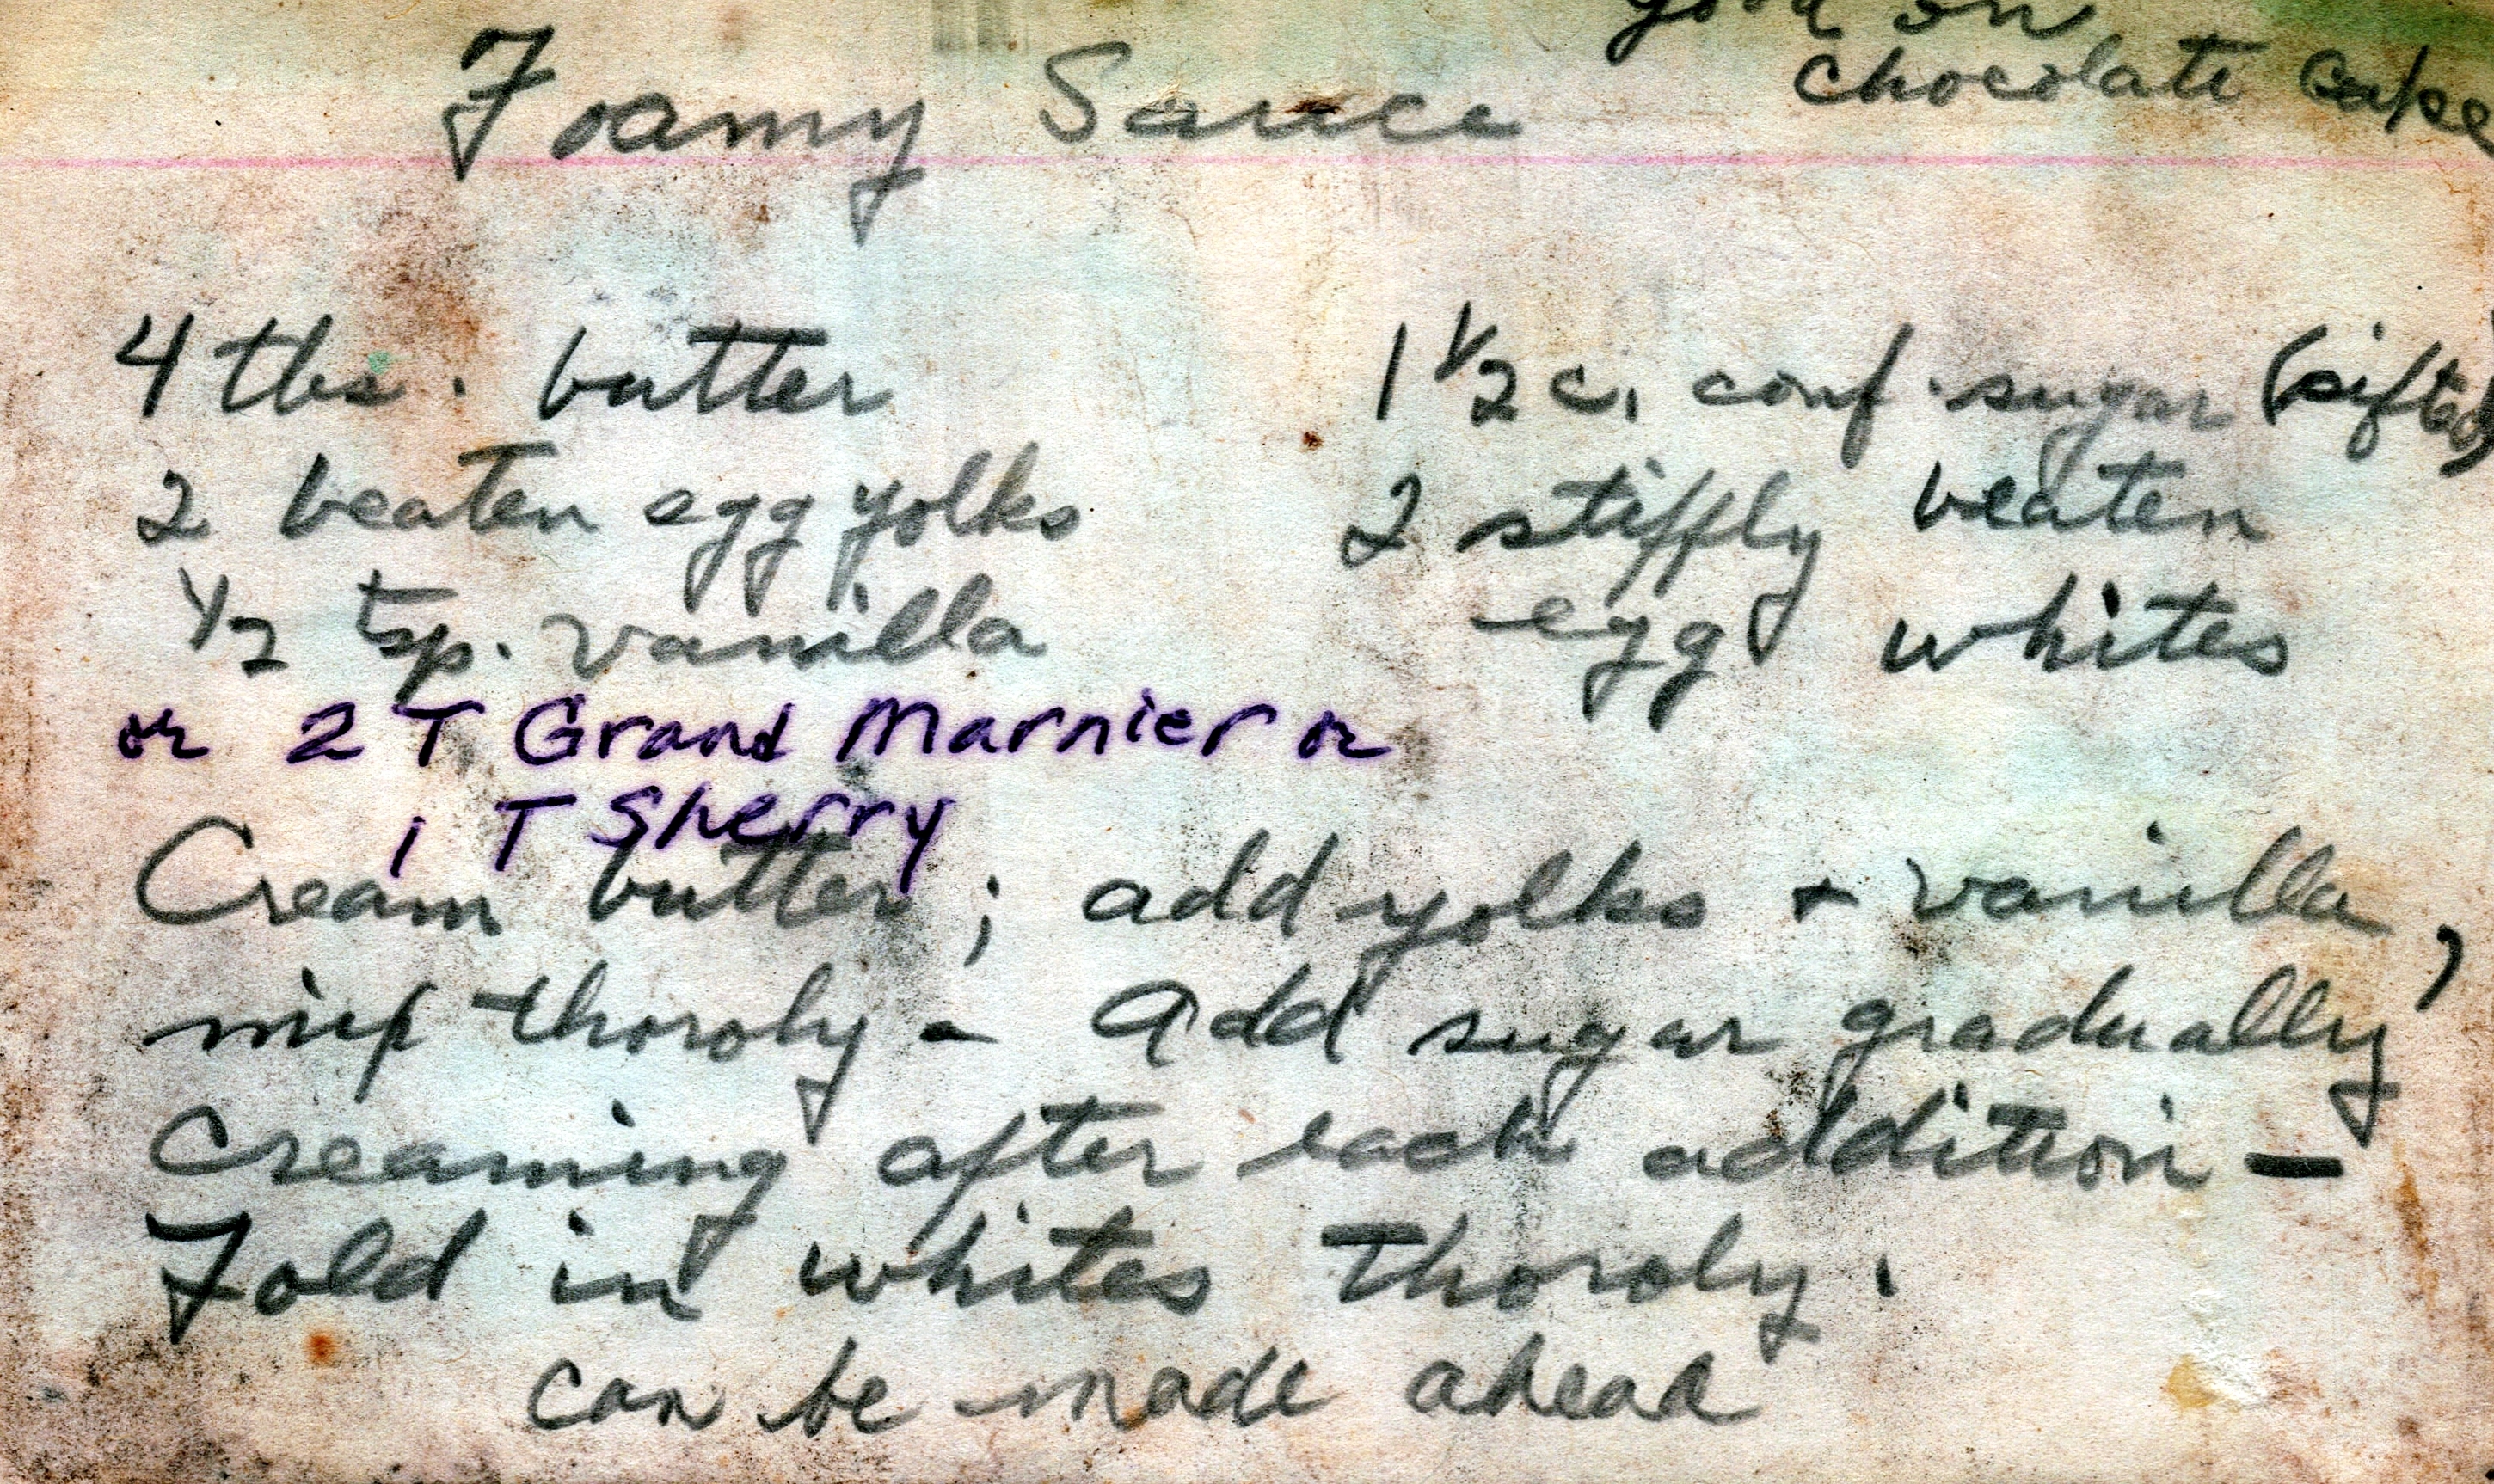 good on
chocolate cake
Foamy Sauce
4 tbs. butter
1 1/2 c. conf. sugar (sifted)
2 beaten egg yolks
2 stiffly beaten
egg whites
1/2 tsp. vanilla
or 2 T Grand Marnier or
1 T Sherry
Cream butter; add yolks + vanilla,
mix thoroly - Add sugar gradually
creaming after each addition -
Fold in whites thoroly.
can be made ahead